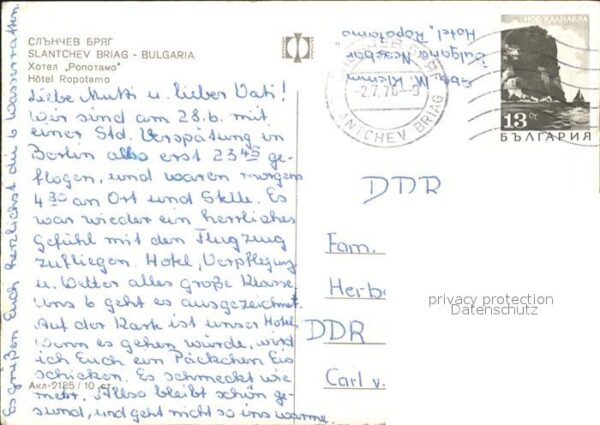 СЛЪНЧЕВ БРЯГ
SLANTCHEV BRIAG - BULGARIA
Хотел „Ропотамо“
Hôtel Ropotamo
Liebe Mutti u. lieber Vati!
Wir sind am 28.6. mit
einer Std. Verspätung in
Berlin also erst 23 45 ge-
flogen, und waren morgens
4 30 an Ort und Stelle. Es
war wieder ein herrliches
Gefühl mit dem Flugzeug
zufliegen. Hotel, Verpflegung
u. Wetter alles große Klasse
uns 6 geht es ausgezeichnet.
Auf der Kark ist unser Hotel.
Wenn es gehen würde, wird
ich Euch ein Päckchen Eis
schicken. Es schmeckt wie
mehr. Also bleibt schön ge-
sund, und geht nicht so ins warme.
Es grüßen Euch herzlichst die 6 Wasserratten
Акл-2185 / 10 ст.
Abs. M. Klemm
Bulgarien Nessebar
Hotel „Ropotamo
-2.7.76-
SLANTCHEV BRIAG
НОС КАЛИАКРА
13 ст.
БЪЛГАРИЯ
DDR
Fam.
Herb
DDR
Carl v.
privacy protection
Datenschutz